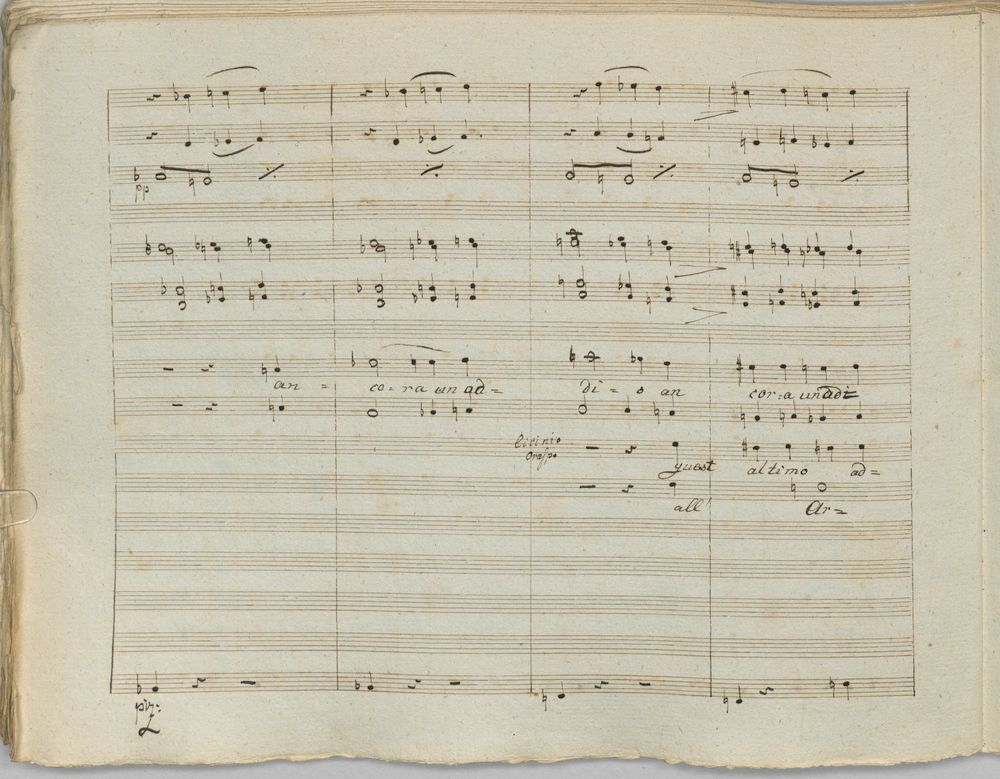 pp
an = co = ra un ad = di = o an cor = a un adi =
Licinio
quest altimo ad =
all' Ar =
piz: